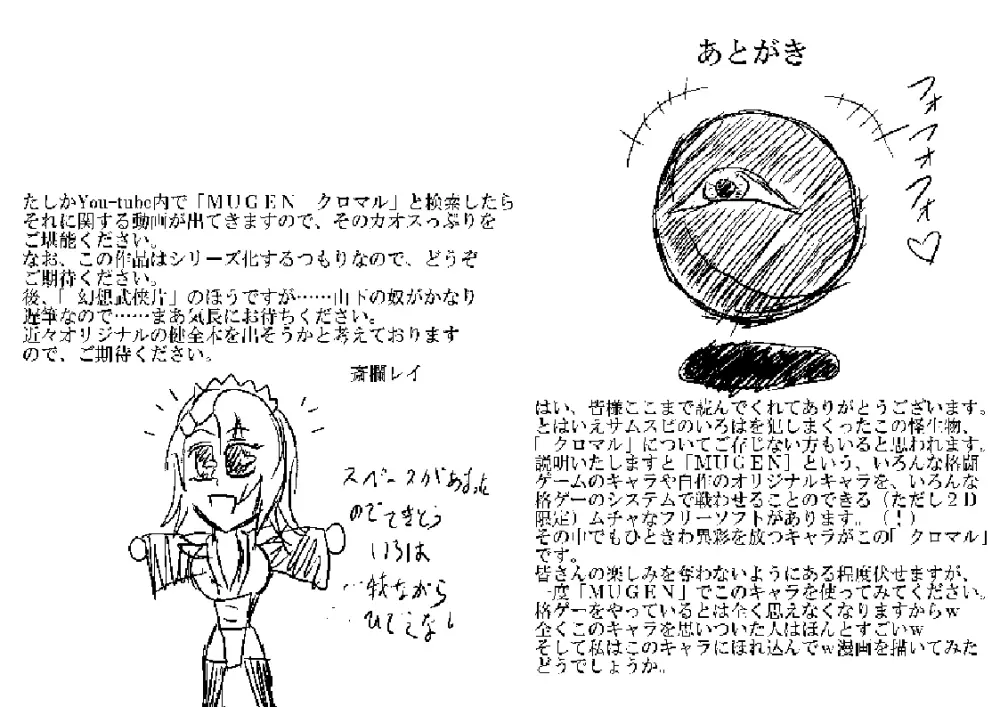 あとがき
フォフォフォ♡
はい、皆様ここまで読んでくれてありがとうございます。
とはいえサムスピのいろはを犯しまくったこの怪生物、
「クロマル」についてご存じない方もいると思われます。
説明いたしますと「ＭＵＧＥＮ］という、いろんな格闘
ゲームのキャラや自作のオリジナルキャラを、いろんな
格ゲーのシステムで戦わせることのできる（ただし２Ｄ
限定）ムチャなフリーソフトがあります。（！）
その中でもひときわ異彩を放つキャラがこの「クロマル」
です。
皆さんの楽しみを奪わないようにある程度伏せますが、
一度「ＭＵＧＥＮ」でこのキャラを使ってみてください。
格ゲーをやっているとは全く思えなくなりますからｗ
全くこのキャラを思いついた人はほんとすごいｗ
そして私はこのキャラにほれ込んでｗ漫画を描いてみた
どうでしょうか。
たしかYou-tube内で「ＭＵＧＥＮ　クロマル」と検索したら
それに関する動画が出てきますので、そのカオスっぷりを
ご堪能ください。
なお、この作品はシリーズ化するつもりなので、どうぞ
ご期待ください。
後、「幻想武侠片」のほうですが……山下の奴がかなり
遅筆なので……まあ気長にお待ちください。
近々オリジナルの健全本を出そうかと考えております
ので、ご期待ください。
斎欄レイ
スペースがあまった
のでてきとう
いろは
…我ながら
ひでえなし